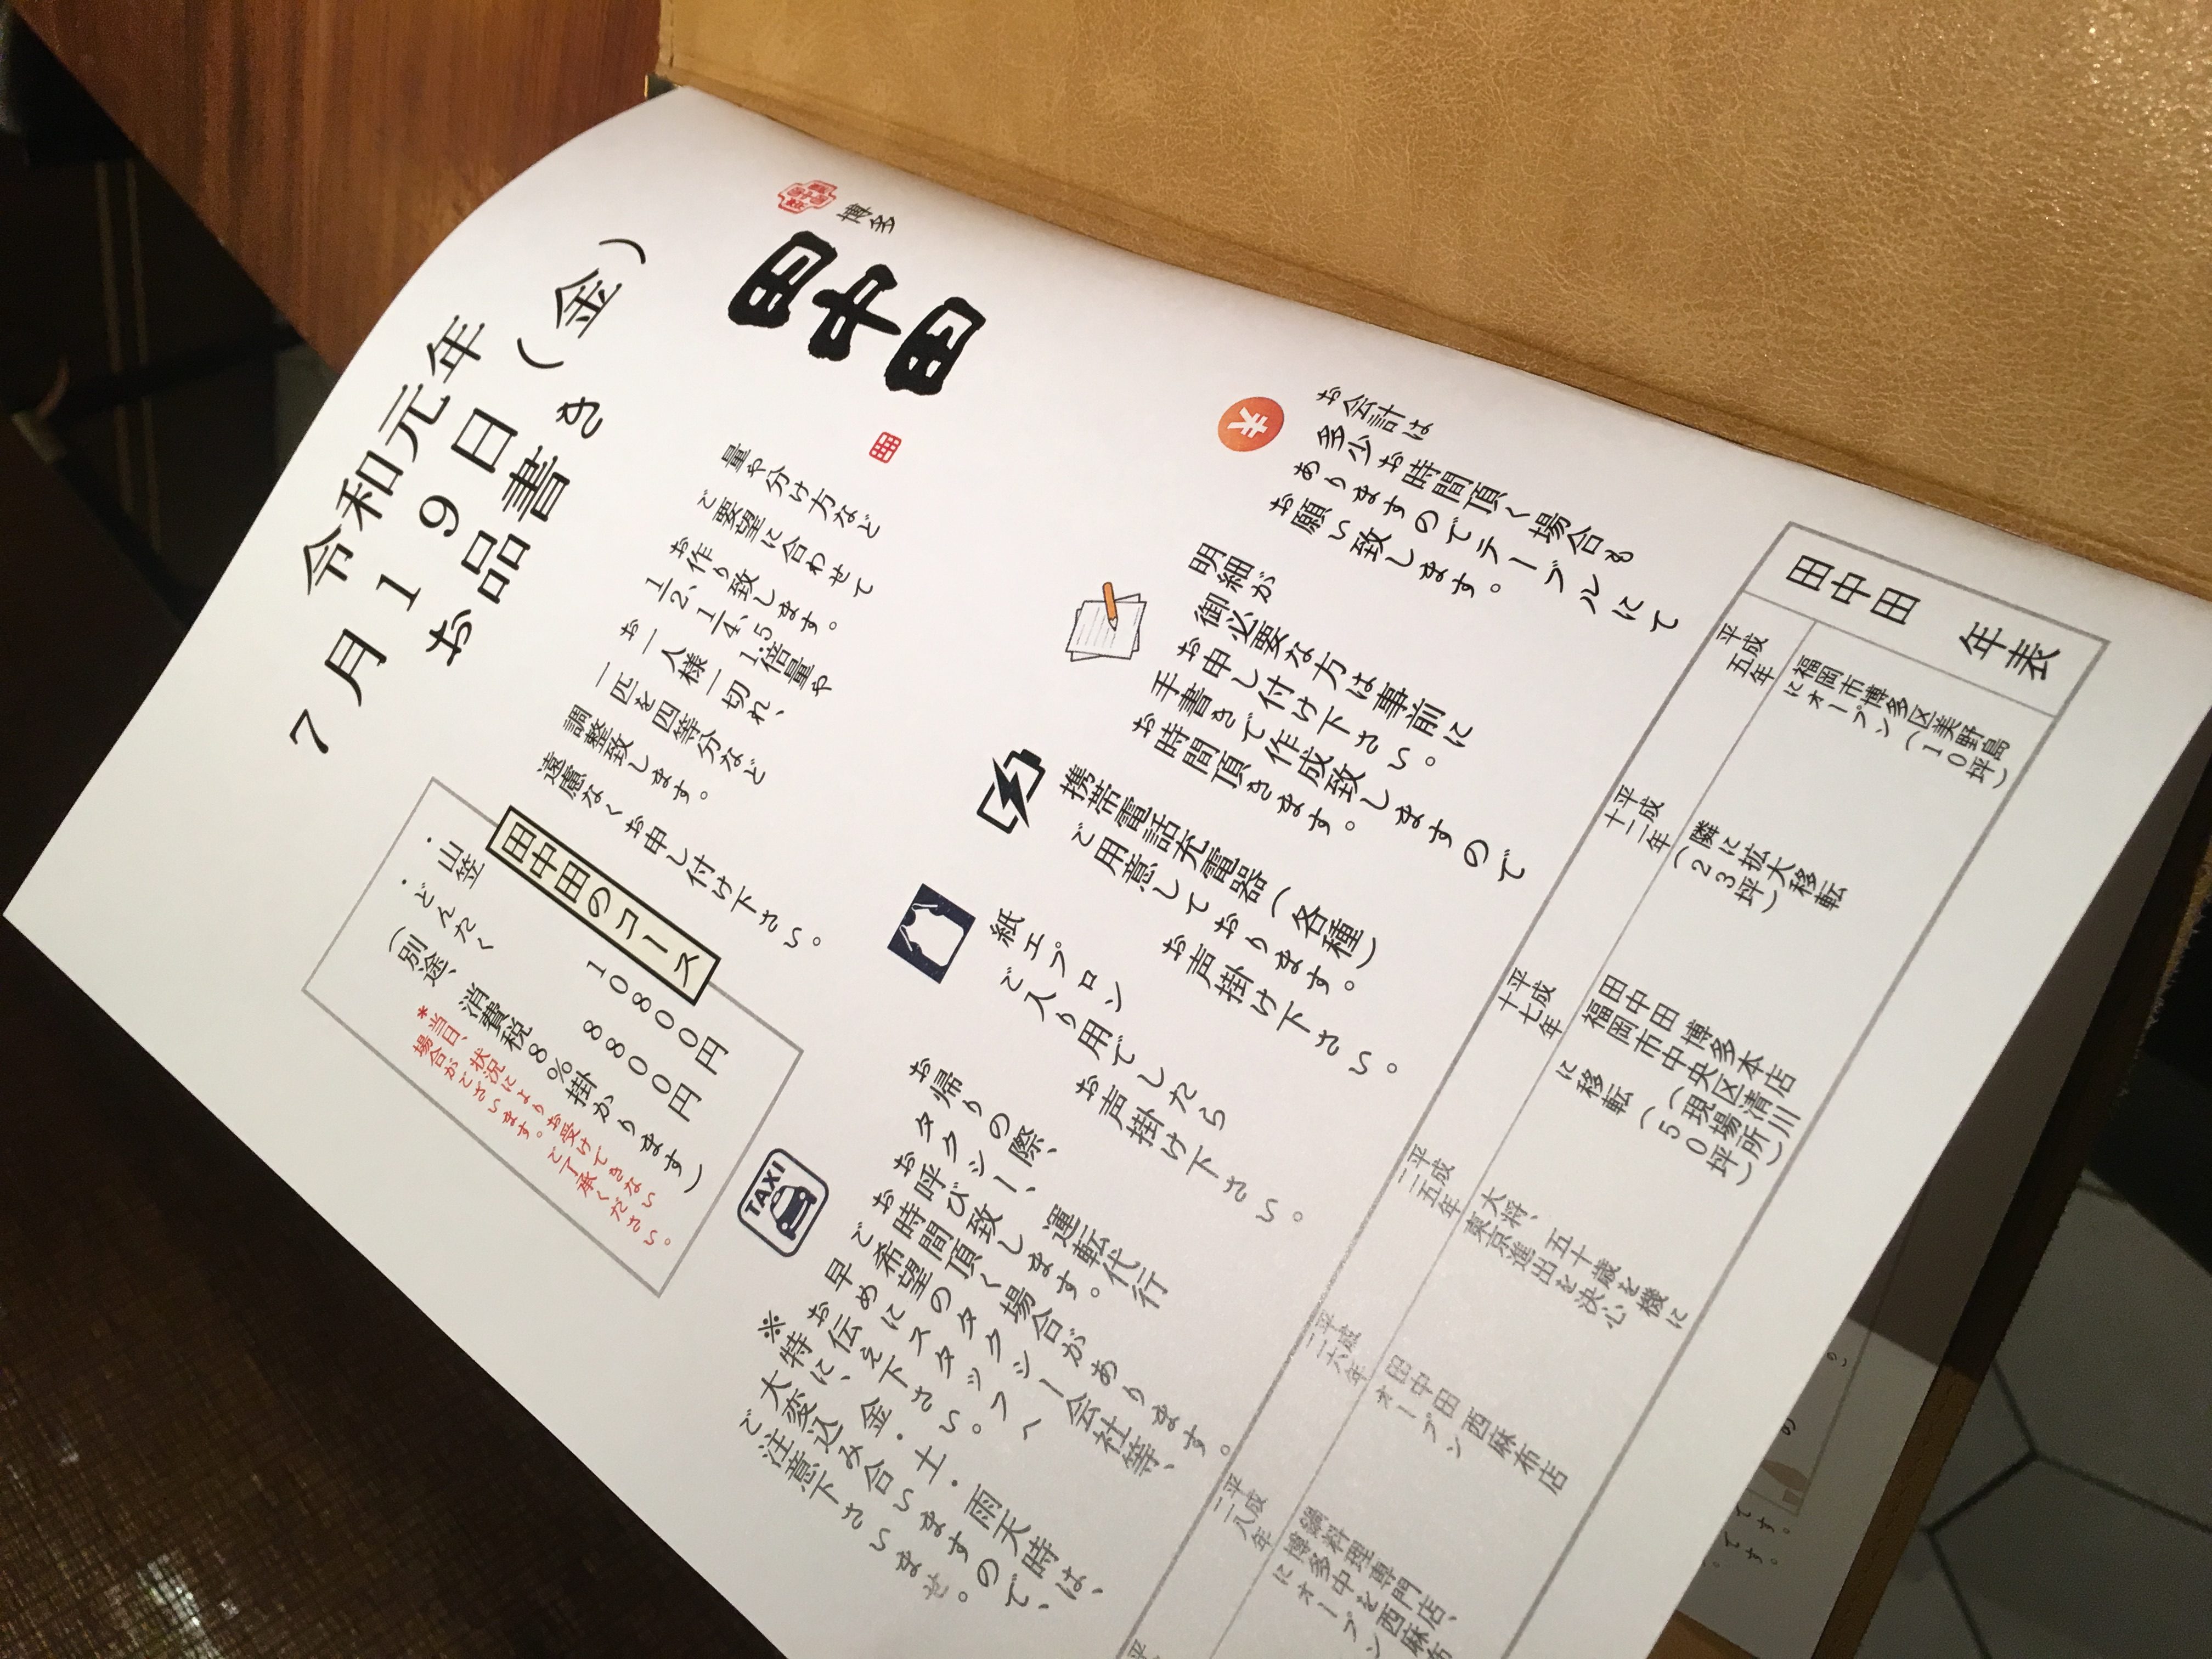 田中田 年表
平成五年
福岡市博多区美野島
にオープン(10坪)
平成十二年
隣に拡大移転
(23坪)
平成十七年
田中田 博多本店
福岡市中央区清川
(現場所)
に移転(50坪)
平成二五年
大将、五十歳を機に
東京進出を決心
平成二六年
田中田 西麻布店
オープン
平成二八年
鍋料理専門店、
博多中を西麻布
にオープン
お会計は
多少お時間頂く場合も
ありますのでテーブルにて
お願い致します。
明細が
御必要な方は事前に
お申し付け下さい。
手書きで作成致しますので
お時間頂きます。
携帯電話充電器(各種)
ご用意しております。
お声掛け下さい。
紙エプロン
ご入り用でしたら
お声掛け下さい。
TAXI
お帰りの際、
タクシー、運転代行
お呼び致します。
お時間頂く場合があります。
ご希望のタクシー会社等、
早めにスタッフへ
お伝え下さい。
※特に、金・土・雨天時は、
大変込み合いますので、
ご注意下さいませ。
博多
田中田
量や分け方など
ご要望に合わせて
お作り致します。
1/2、1/4、1.5倍量や
お一人様一切れ、
一匹を四等分など
調整致します。
遠慮なくお申し付け下さい。
令和元年
7月19日(金)
お品書き
田中田のコース
・山笠 10800円
・どんたく 8800円
(別途、消費税8%掛かります)
*当日、状況によりお受けできない
場合がございます。ご了承ください。